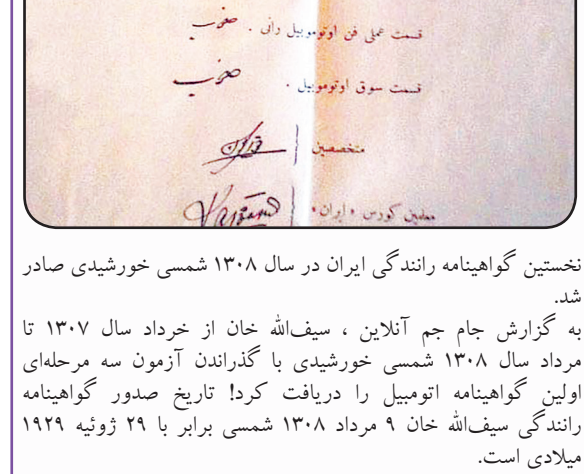 قسمت عملی فن اوتوموبیل رانی . خوب
قسمت سوق اوتوموبیل . خوب
متخصصین
معلمین کورس «ایران»
نخستین گواهینامه رانندگی ایران در سال ۱۳۰۸ شمسی خورشیدی صادر
شد.
به گزارش جام جم آنلاین ، سیف‌الله خان از خرداد سال ۱۳۰۷ تا
مرداد سال ۱۳۰۸ شمسی خورشیدی با گذراندن آزمون سه مرحله‌ای
اولین گواهینامه اتومبیل را دریافت کرد! تاریخ صدور گواهینامه
رانندگی سیف‌الله خان ۹ مرداد ۱۳۰۸ شمسی برابر با ۲۹ ژوئیه ۱۹۲۹
میلادی است.